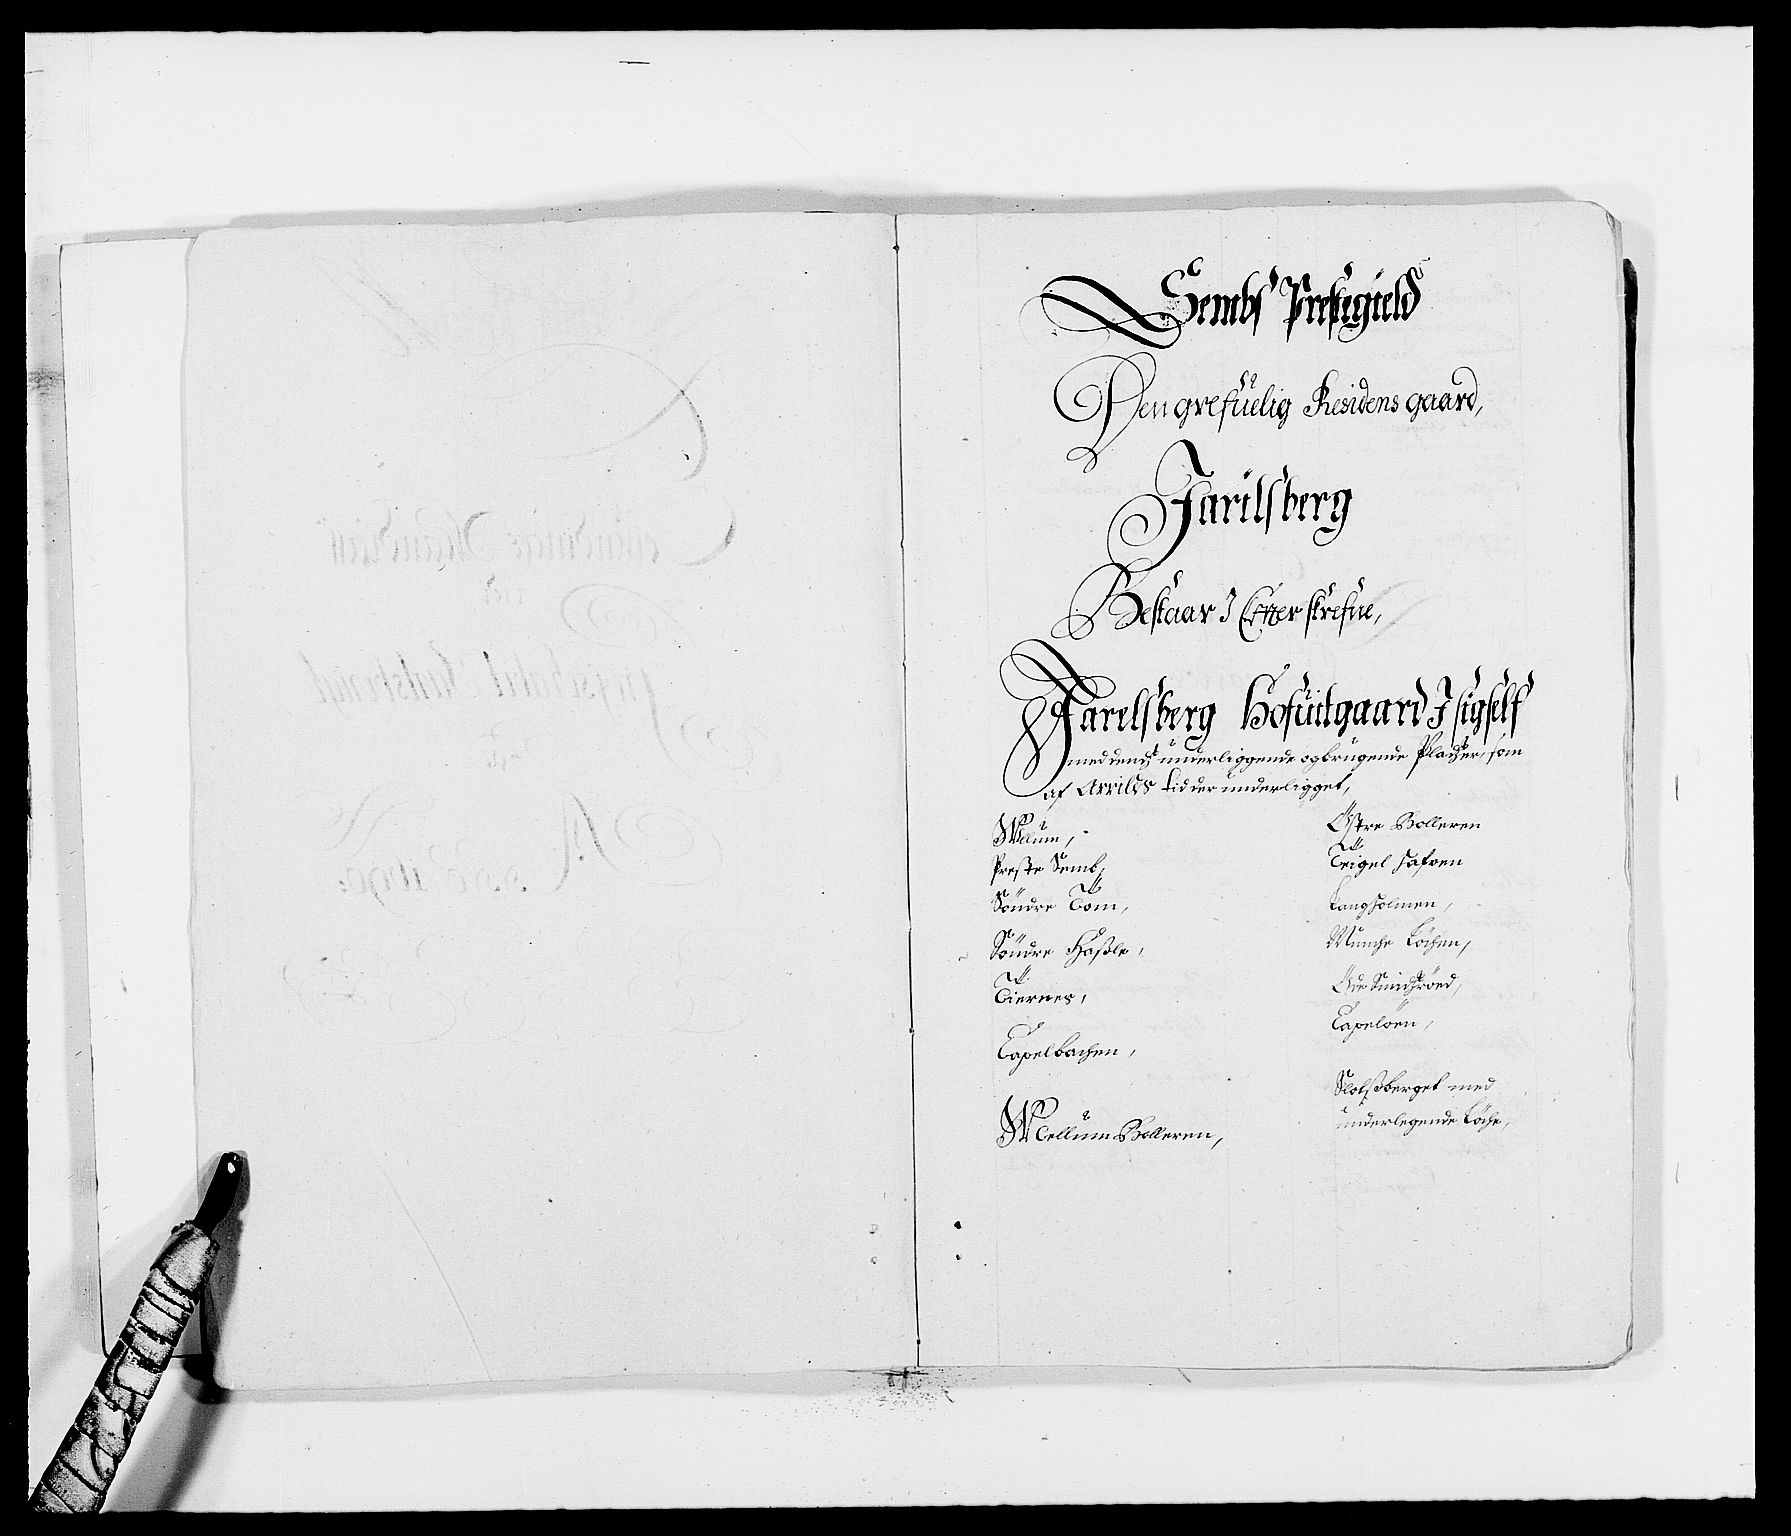 Sembs Prestegield
Den grefuelig Residens gaard,
Jarilsberg
Bestaar J Efter skrefne,
Jarelsberg Hofuitgaard J sigself
med dends underliggende og brugende Pladtzer, som
af Arrilds tid der underligget,
Wellum,
Preste Semb,
Söndre Tom,
Söndre Hassle,
Tiernes,
Capelbachen,
Mellum Bolleren,
Östre Bolleren
Teigel hafven
Langholmen,
Munche Löchen,
Öde Smidsröed,
Capelöen,
Slotsberget med
underlegende Löche,